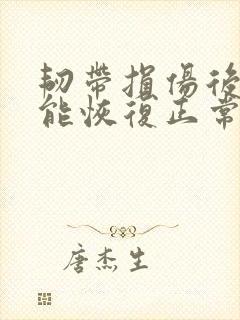 韌帶損傷後
能恢復正常
唐杰生